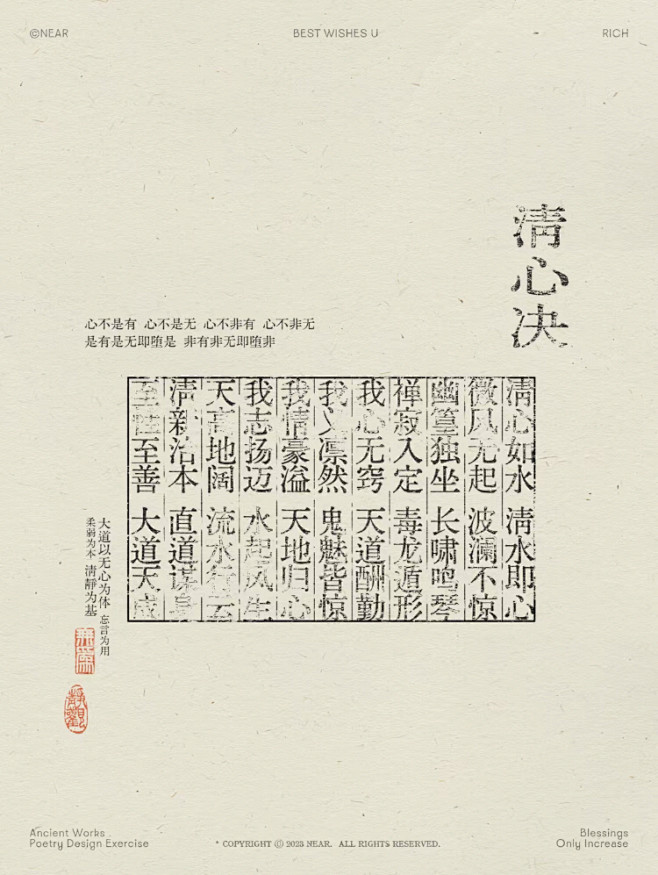 ©NEAR
BEST WISHES U
RICH
清心决
心不是有 心不是无 心不非有 心不非无
是有是无即堕是 非有非无即堕非
清心如水 清水即心
微风无起 波澜不惊
幽篁独坐 长啸鸣琴
禅寂入定 毒龙遁形
我心无窍 天道酬勤
我义凛然 鬼魅皆惊
我情豪溢 天地归心
我志扬迈 水起风生
天高地阔 流水行云
清新治本 直道谋身
至性至善 大道天成
大道以无心为体 忘言为用
柔弱为本 清静为基
靜觀
Ancient Works
Poetry Design Exercise
* COPYRIGHT © 2023 NEAR. ALL RIGHTS RESERVED.
Blessings
Only Increase